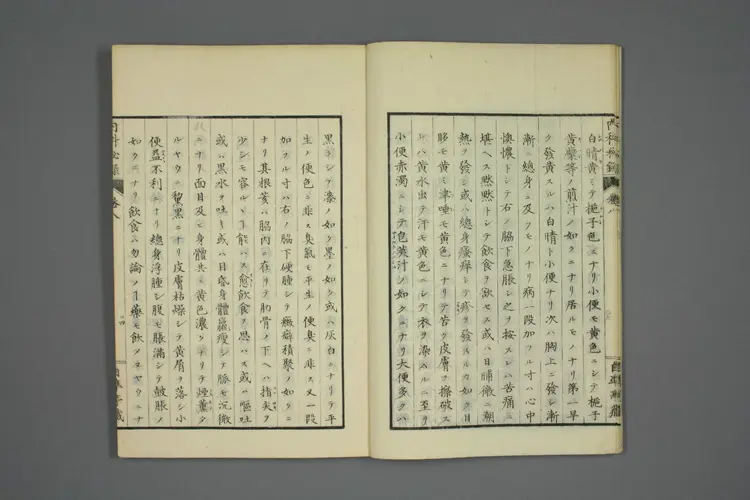 内科秘録
巻八
白睛黄ミテ梔子色ニナリ小便モ黄色ニシテ梔子
黄蘗等ノ煎汁ノ如クニナリ居ルモノナリ第一早
ク發黄スルハ白睛ト小便ナリ次ハ胸上ニ發シ漸
漸ニ總身ニ及フモノナリ病一段加フル寸ハ心中
懊憹トシテ右ノ脇下急脹シ之ヲ按スレハ苦痛ニ
堪ヘス黙黙トシテ飲食ヲ欲セス或ハ日晡微ニ潮
熱ヲ發シ或ハ總身瘙痒シテ疹ヲ發スルカ如ク目
眵モ黄ミ津唾モ黄色ニナリテ苦ク皮膚ヲ擦破ス
レハ黄水出テ汗モ黄色ニシテ衣ヲ染ルニ至リ
小便赤濁ニシテ色蘇汁ノ如クニナリ大便多クハ
黒クシテ漆ノ如ク墨ノ如ク或ハ灰白ニナリテ平
生ノ便色ニ非ス臭氣モ平生ノ便臭ニ非ス又一段
加フル寸ハ右ノ脇下硬腫シテ癥癖積聚ノ如クニ
ナリ其根蔕ハ脇内ニ在リテ肋骨ノ下ヘハ指尖ヲ
少シモ容ルヽ了能ハス愈飲食ヲ思ハス或ハ嘔吐
或ハ黒水ヲ吐シ或ハ目昏身體羸瘦シテ脉モ沉微
ニナリ面目及ヒ身體共ニ黄色濃クナリテ煙薰テ
ルヤウニ黧黒ニナリ皮膚枯燥シテ黄屑ヲ落シ小
便益不利ニナリ總身浮腫シ腹モ脹滿シテ皷脹ノ
如クニナリ飲食ハ勿論ノ了藥モ飲ヌヤウニナ
内科秘録
巻八
四